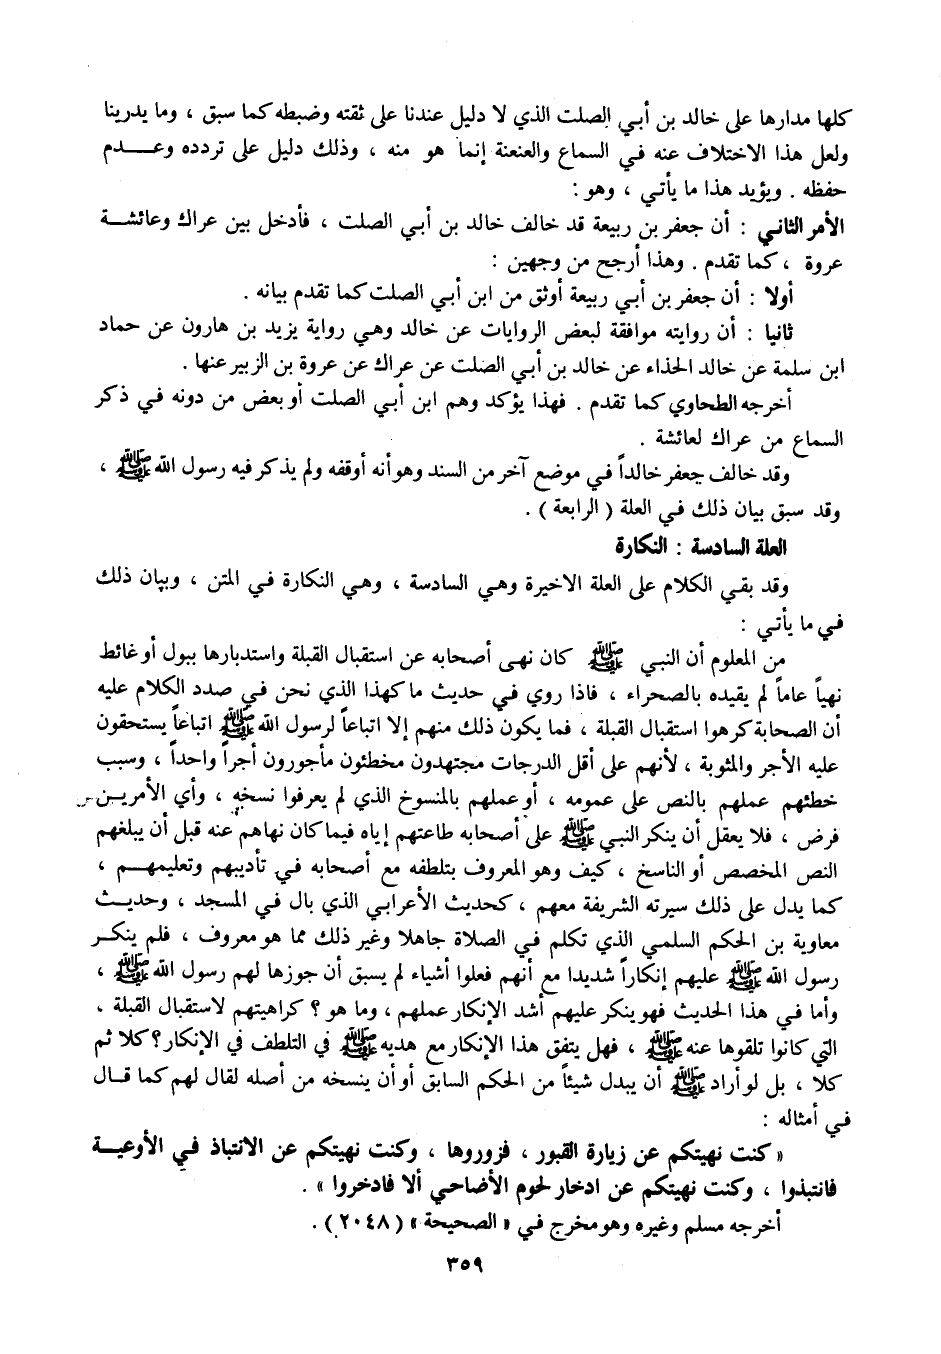 كلها مدارها على خالد بن أبي الصلت الذي لا دليل عندنا على ثقته وضبطه كما سبق ، وما يدرينا
ولعل هذا الاختلاف عنه في السماع والعنعنة إنما هو منه ، وذلك دليل على تردده وعـــدم
حفظه . ويؤيد هذا ما يأتي ، وهو :
الأمر الثاني : أن جعفر بن ربيعة قد خالف خالد بن أبي الصلت ، فأدخل بين عراك وعائشـــة
عروة ، كما تقدم . وهذا أرجح من وجهين :
أولا : أن جعفر بن أبي ربيعة أوثق من ابن أبي الصلت كما تقدم بيانه .
ثانيا : أن روايته موافقة لبعض الروايات عن خالد وهي رواية يزيد بن هارون عن حماد
ابن سلمة عن خالد الحذاء عن خالد بن أبي الصلت عن عراك عن عروة بن الزبير عنها .
أخرجه الطحاوي كما تقدم . فهذا يؤكد وهم ابن أبي الصلت أو بعض من دونه في ذكر
السماع من عراك لعائشة .
وقد خالف جعفر خالداً في موضع آخر من السند وهو أنه أوقفه ولم يذكر فيه رسول الله ﷺ ،
وقد سبق بيان ذلك في العلة ( الرابعة ) .
العلة السادسة : النكارة
وقد بقي الكلام على العلة الاخيرة وهي السادسة ، وهي النكارة في المتن ، وبيان ذلك
في ما يأتي :
من المعلوم أن النبي ﷺ كان نهى أصحابه عن استقبال القبلة واستدبارها ببول أو غائط
نهياً عاماً لم يقيده بالصحراء ، فاذا روي في حديث ما كهذا الذي نحن في صدد الكلام عليه
أن الصحابة كرهوا استقبال القبلة ، فما يكون ذلك منهم إلا اتباعاً لرسول الله ﷺ اتباعاً يستحقون
عليه الأجر والمثوبة ، لأنهم على أقل الدرجات مجتهدون مخطئون مأجورون أجراً واحداً ، وسبب
خطئهم عملهم بالنص على عمومه ، أو عملهم بالمنسوخ الذي لم يعرفوا نسخه ، وأي الأمريـن
فرض ، فلا يعقل أن ينكر النبي ﷺ على أصحابه طاعتهم إياه فيما كان نهاهم عنه قبل أن يبلغهم
النص المخصص أو الناسخ ، كيف وهو المعروف بتلطفه مع أصحابه في تأديبهم وتعليمهــم ،
كما يدل على ذلك سيرته الشريفة معهم ، كحديث الأعرابي الذي بال في المسجد ، وحديـث
معاوية بن الحكم السلمي الذي تكلم في الصلاة جاهلا وغير ذلك مما هو معروف ، فلم ينكـر
رسول الله ﷺ عليهم إنكاراً شديدا مع أنهم فعلوا أشياء لم يسبق أن جوزها لهم رسول الله ﷺ ،
وأما في هذا الحديث فهو ينكر عليهم أشد الإنكار عملهم ، وما هو ؟ كراهيتهم لاستقبال القبلة ،
التي كانوا تلقوها عنه ﷺ ، فهل يتفق هذا الإنكار مع هديه ﷺ في التلطف في الإنكار ؟ كلا ثم
كلا ، بل لو أراد ﷺ أن يبدل شيئاً من الحكم السابق أو أن ينسخه من أصله لقال لهم كما قـال
في أمثاله :
« كنت نهيتكم عن زيارة القبور ، فزوروها ، وكنت نهيتكم عن الانتباذ في الأوعيـــة
فانتبذوا ، وكنت نهيتكم عن ادخار لحوم الأضاحي ألا فادخروا » .
أخرجه مسلم وغيره وهو مخرج في « الصحيحة » ( ٢٠٤٨ ) .
٣٥٩